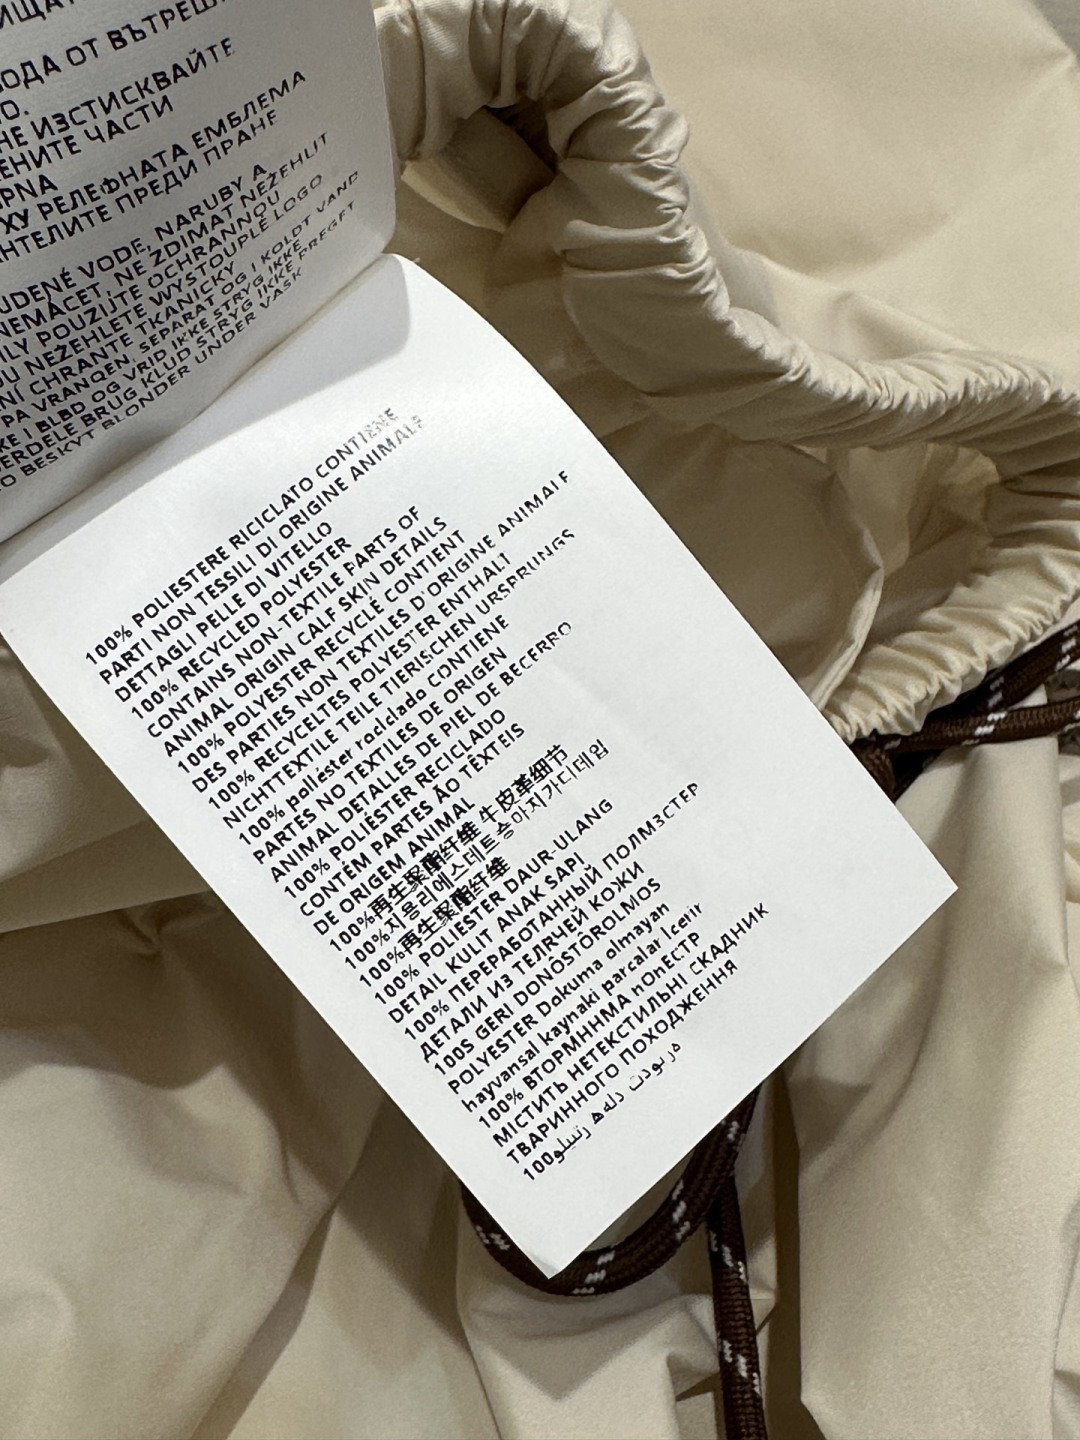 ВОДА ОТ ВЪТРЕШ
НЕ ИЗСТИСКВАЙТЕ
ЧАСТИ
РЕЛЕФНАТА ЕМБЛЕМА
ПРЕДИ ПРАНЕ
UDENÉ VODE, NARUBY A
NEMÁCET, NE ŽDIMAT NEŽEHLIT
ILY POUZIJTE OCHRANNOU
OU NEŽEHLETE WYSTOUPLÉ LOGO
NÍ CHRANTE TKANICKY
PA VRANQEN, SEPARAT OG I KOLDT VAND
KE I BLBD OG VRID IKKE STRYG IKKE PREGET
ERDELE BRUG KLUD STRYG IKKE
TO BESKYT BLONDER UNDER VASK
100% POLIESTERE RICICLATO CONTIENE
PARTI NON TESSILI DI ORIGINE ANIMALE
DETTAGLI PELLE DI VITELLO
100% RECYCLED POLYESTER
CONTAINS NON-TEXTILE PARTS OF
ANIMAL ORIGIN CALF SKIN DETAILS
100% POLYESTER RECYCLÉ CONTIENT
DES PARTIES NON TEXTILES D'ORIGINE ANIMALE
100% RECYCELTES POLYESTER ENTHÄLT
NICHTTEXTILE TEILE TIERISCHEN URSPRUNGS
100% poliéster reciclado CONTIENE
PARTES NO TEXTILES DE ORIGEN
ANIMAL DETALLES DE PIEL DE BECERRO
100% POLIÉSTER RECICLADO
CONTÉM PARTES ÃO TÊXTEIS
DE ORIGEM ANIMAL
100%再生聚酯纤维 牛皮革细节
100%지용리에스데트숭아지가디데임
100%再生聚酯纤维
100% POLIESTER DAUR-ULANG
DETAIL KULIT ANAK SAPI
100% ПЕРЕРАБОТАННЫЙ ПОЛМЗСТЕР
ДЕТАЛИ ИЗ ТЕЛЯЧЕЙ КОЖИ
100S GERI DONÔSTÔROLMOS
POLYESTER Dokuma olmayan
hayvansal kaynaki parcalar İcerir
100% ВТОРМННМА nOnЕСТР
МІСТИТЬ НЕТЕКСТИЛЬНІ СКАДНИК
ТВАРИННОГО ПОХОДЖЕННЯ
100